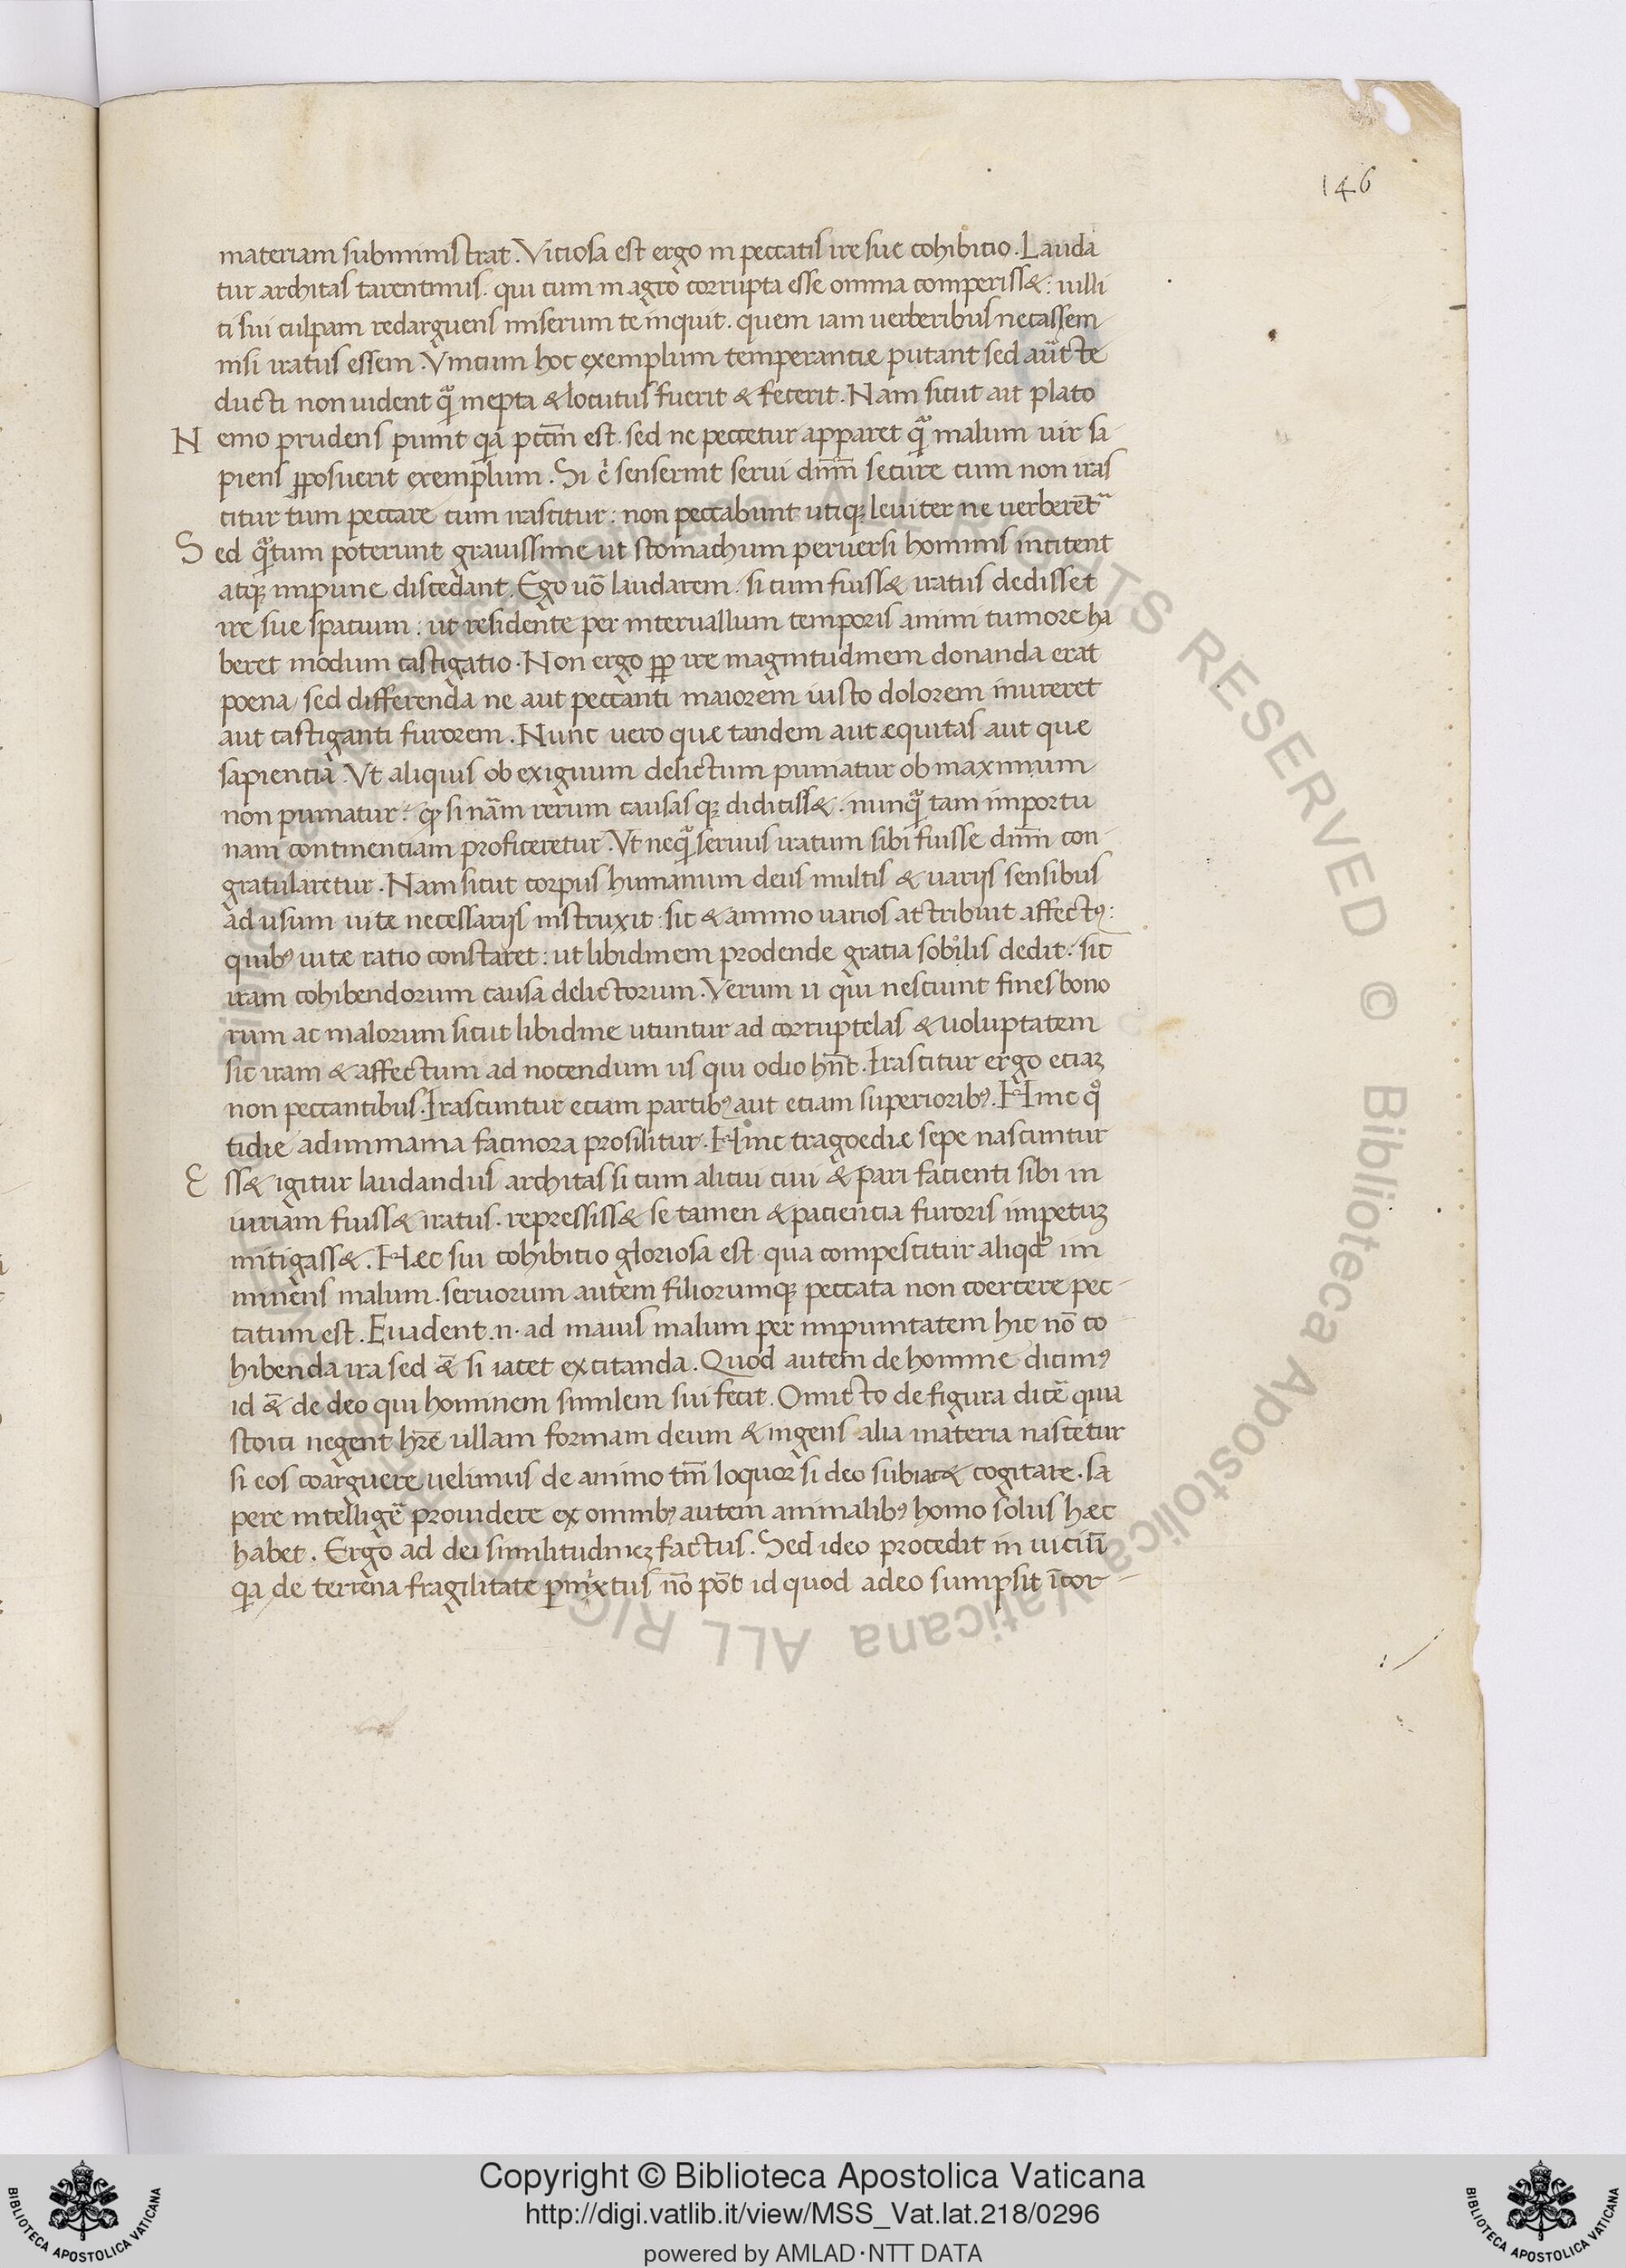 146
materiam subministrat. Viciosa est ergo in peccatis ire sue cohibitio. Lauda
tur architas tarentinus. qui cum in agro corrupta esse omnia comperiss&: uilli
ci sui culpam redarguens miserum te inquit. quem iam uerberibus necassem
nisi iratus essem. Vnicum hoc exemplum temperantiæ putant sed auctc
ducti non uident q̃ inepta & locutus fuerit & fecerit. Nam sicut ait plato
Nemo prudens punit qa pccm̄ est. sed ne peccetur apparet q̃ malum uir sa
piens pposuerit exemplum. Si .n. senserint serui dnm̄ seuire cum non iras
citur tum peccare cum irascitur: non peccabunt utiqꝫ leuiter ne uerberent̃
Sed q̃tum poterunt grauissime ut stomachum peruersi hominis incitent
atqꝫ impune discedant. Ego uō laudarem. si cum fuiss& iratus dedisset
ire sue spatium: ut residente per interuallum temporis animi tumore ha
beret modum castigatio. Non ergo pp ire magnitudinem donanda erat
poena, sed differenda ne aut peccanti maiorem iusto dolorem inureret
aut castiganti furorem. Nunc uero que tandem aut æquitas aut que
sapientia. Vt aliquis ob exiguum delictum puniatur ob maximum
non puniatur: qꝫ si nām rerum causasqꝫ didiciss&. nunq̃ tam importu
nam continenciam proficeretur. Vt neq̃ seruus iratum sibi fuisse dnm̄ con
gratularetur. Nam sicut corpus humanum deus multis & uarijs sensibus
ad usum uite necessarijs instruxit: sic & animo uarios attribuit affectꝰ:
quibꝰ uitæ ratio constaret: ut libidinem prodende gratia sobolis dedit. sic
iram cohibendorum causa delictorum. Verum ii qui nesciunt fines bono
rum ac malorum sicut libidine utuntur ad corruptelas & uoluptatem
sic iram & affectum ad nocendum iis qui odio hnt̄. Irascitur ergo eciaꝫ
non peccantibus. Irascuntur eciam paribꝰ aut eciam superioribꝰ. Hinc qͦ
tidie ad immania facinora prosilitur. Hinc tragoediæ sepe nascuntur
Ess& igitur laudandus architas si cum alicui ciui & pari facienti sibi in
iuriam fuiss& iratus. repressiss& se tamen & paciencia furoris impetuꝫ
mitigass&. Hæc sui cohibitio gloriosa est qua compescitur aliqd im
minens malum. seruorum autem filiorumqꝫ peccata non coercere pec
catum est. Euadent .n. ad maius malum per impunitatem hic nō co
hibenda ira sed &̄ si iacet excitanda. Quod autem de homine dicimꝰ
id &̄ de deo qui hominem similem sui fecit. Omicto de figura dicē̄ quia
stoici negent hrē ullam formam deum & ingens alia materia nascetur
si eos coarguere uelimus de animo tm̄ loquor si deo subiac& cogitare. sa
pere intelligē̄ prouidere ex omnibꝰ autem animalibꝰ homo solus hæc
habet. Ergo ad dei similitudineꝫ factus. Sed ideo procedit in uiciū
qa de terrena fragilitate pmixtus nō pōt id quod a deo sumpsit īcor
Copyright © Biblioteca Apostolica Vaticana
http://digi.vatlib.it/view/MSS_Vat.lat.218/0296
powered by AMLAD·NTT DATA